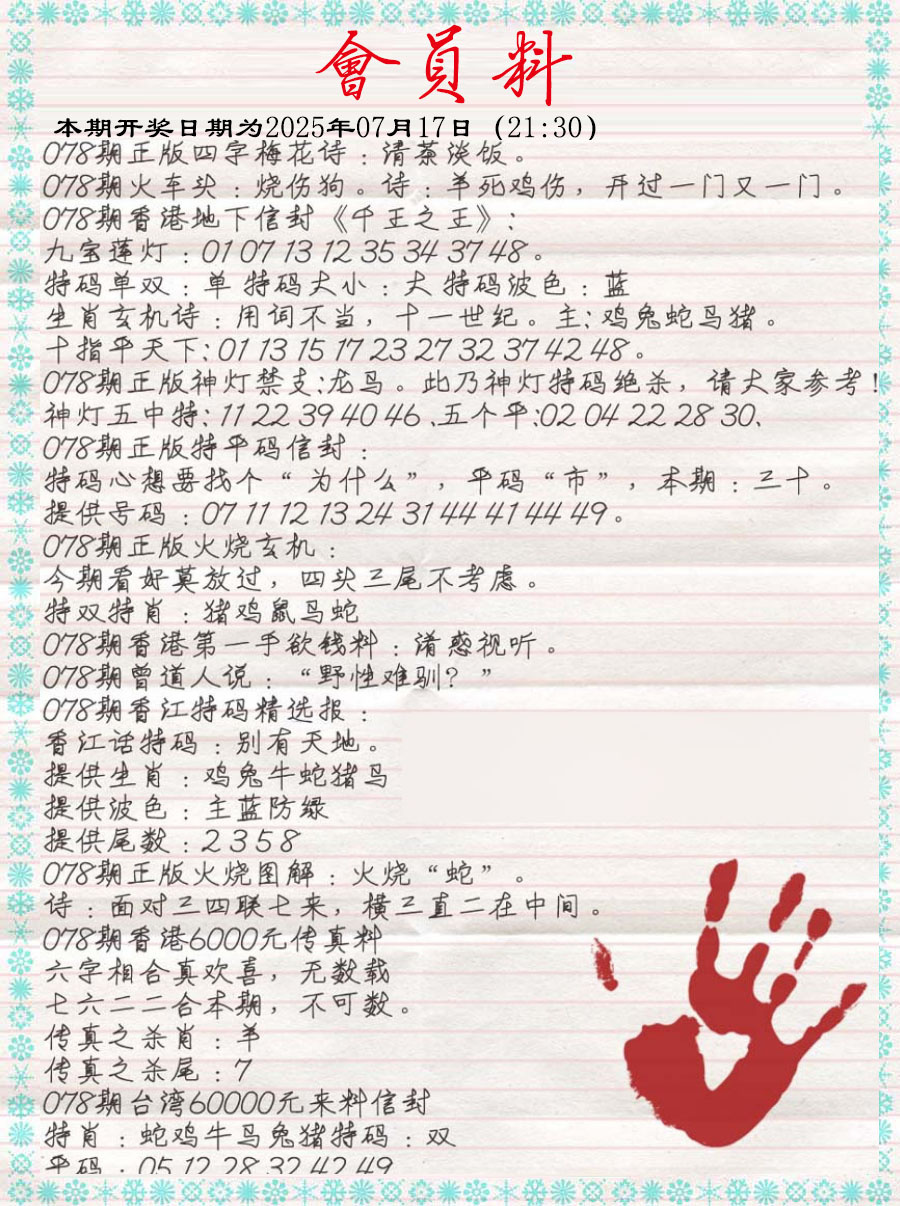 會員料
本期开奖日期为2025年07月17日（21:30）
078期正版四字梅花诗：清茶淡饭。
078期火车头：烧伤狗。诗：羊死鸡伤，开过一门又一门。
078期香港地下信封《千王之王》：
九宝莲灯：01 07 13 12 35 34 37 48。
特码单双：单 特码大小：大 特码波色：蓝
生肖玄机诗：用词不当，十一世纪。主：鸡兔蛇马猪。
十指平天下：01 13 15 17 23 27 32 37 42 48。
078期正版神灯禁支：龙马。此乃神灯特码绝杀，请大家参考！
神灯五中特：11 22 39 40 46、五个平：02 04 22 28 30、
078期正版特平码信封：
特码心想要找个“为什么”，平码“市”，本期：三十。
提供号码：07 11 12 13 24 31 44 41 44 49。
078期正版火烧玄机：
今期看好莫放过，四头三尾不考虑。
特双特肖：猪鸡鼠马蛇
078期香港第一手欲钱料：淆惑视听。
078期曾道人说：“野性难驯？”
078期香江特码精选报：
香江话特码：别有天地。
提供生肖：鸡兔牛蛇猪马
提供波色：主蓝防绿
提供尾数：2 3 5 8
078期正版火烧图解：火烧“蛇”。
诗：面对三四联七来，横三直二在中间。
078期香港6000元传真料
六字相合真欢喜，无数载
七六二二合本期，不可数。
传真之杀肖：羊
传真之杀尾：7
078期台湾60000元来料信封
特肖：蛇鸡牛马兔猪特码：双
平码：05 12 28 32 42 49